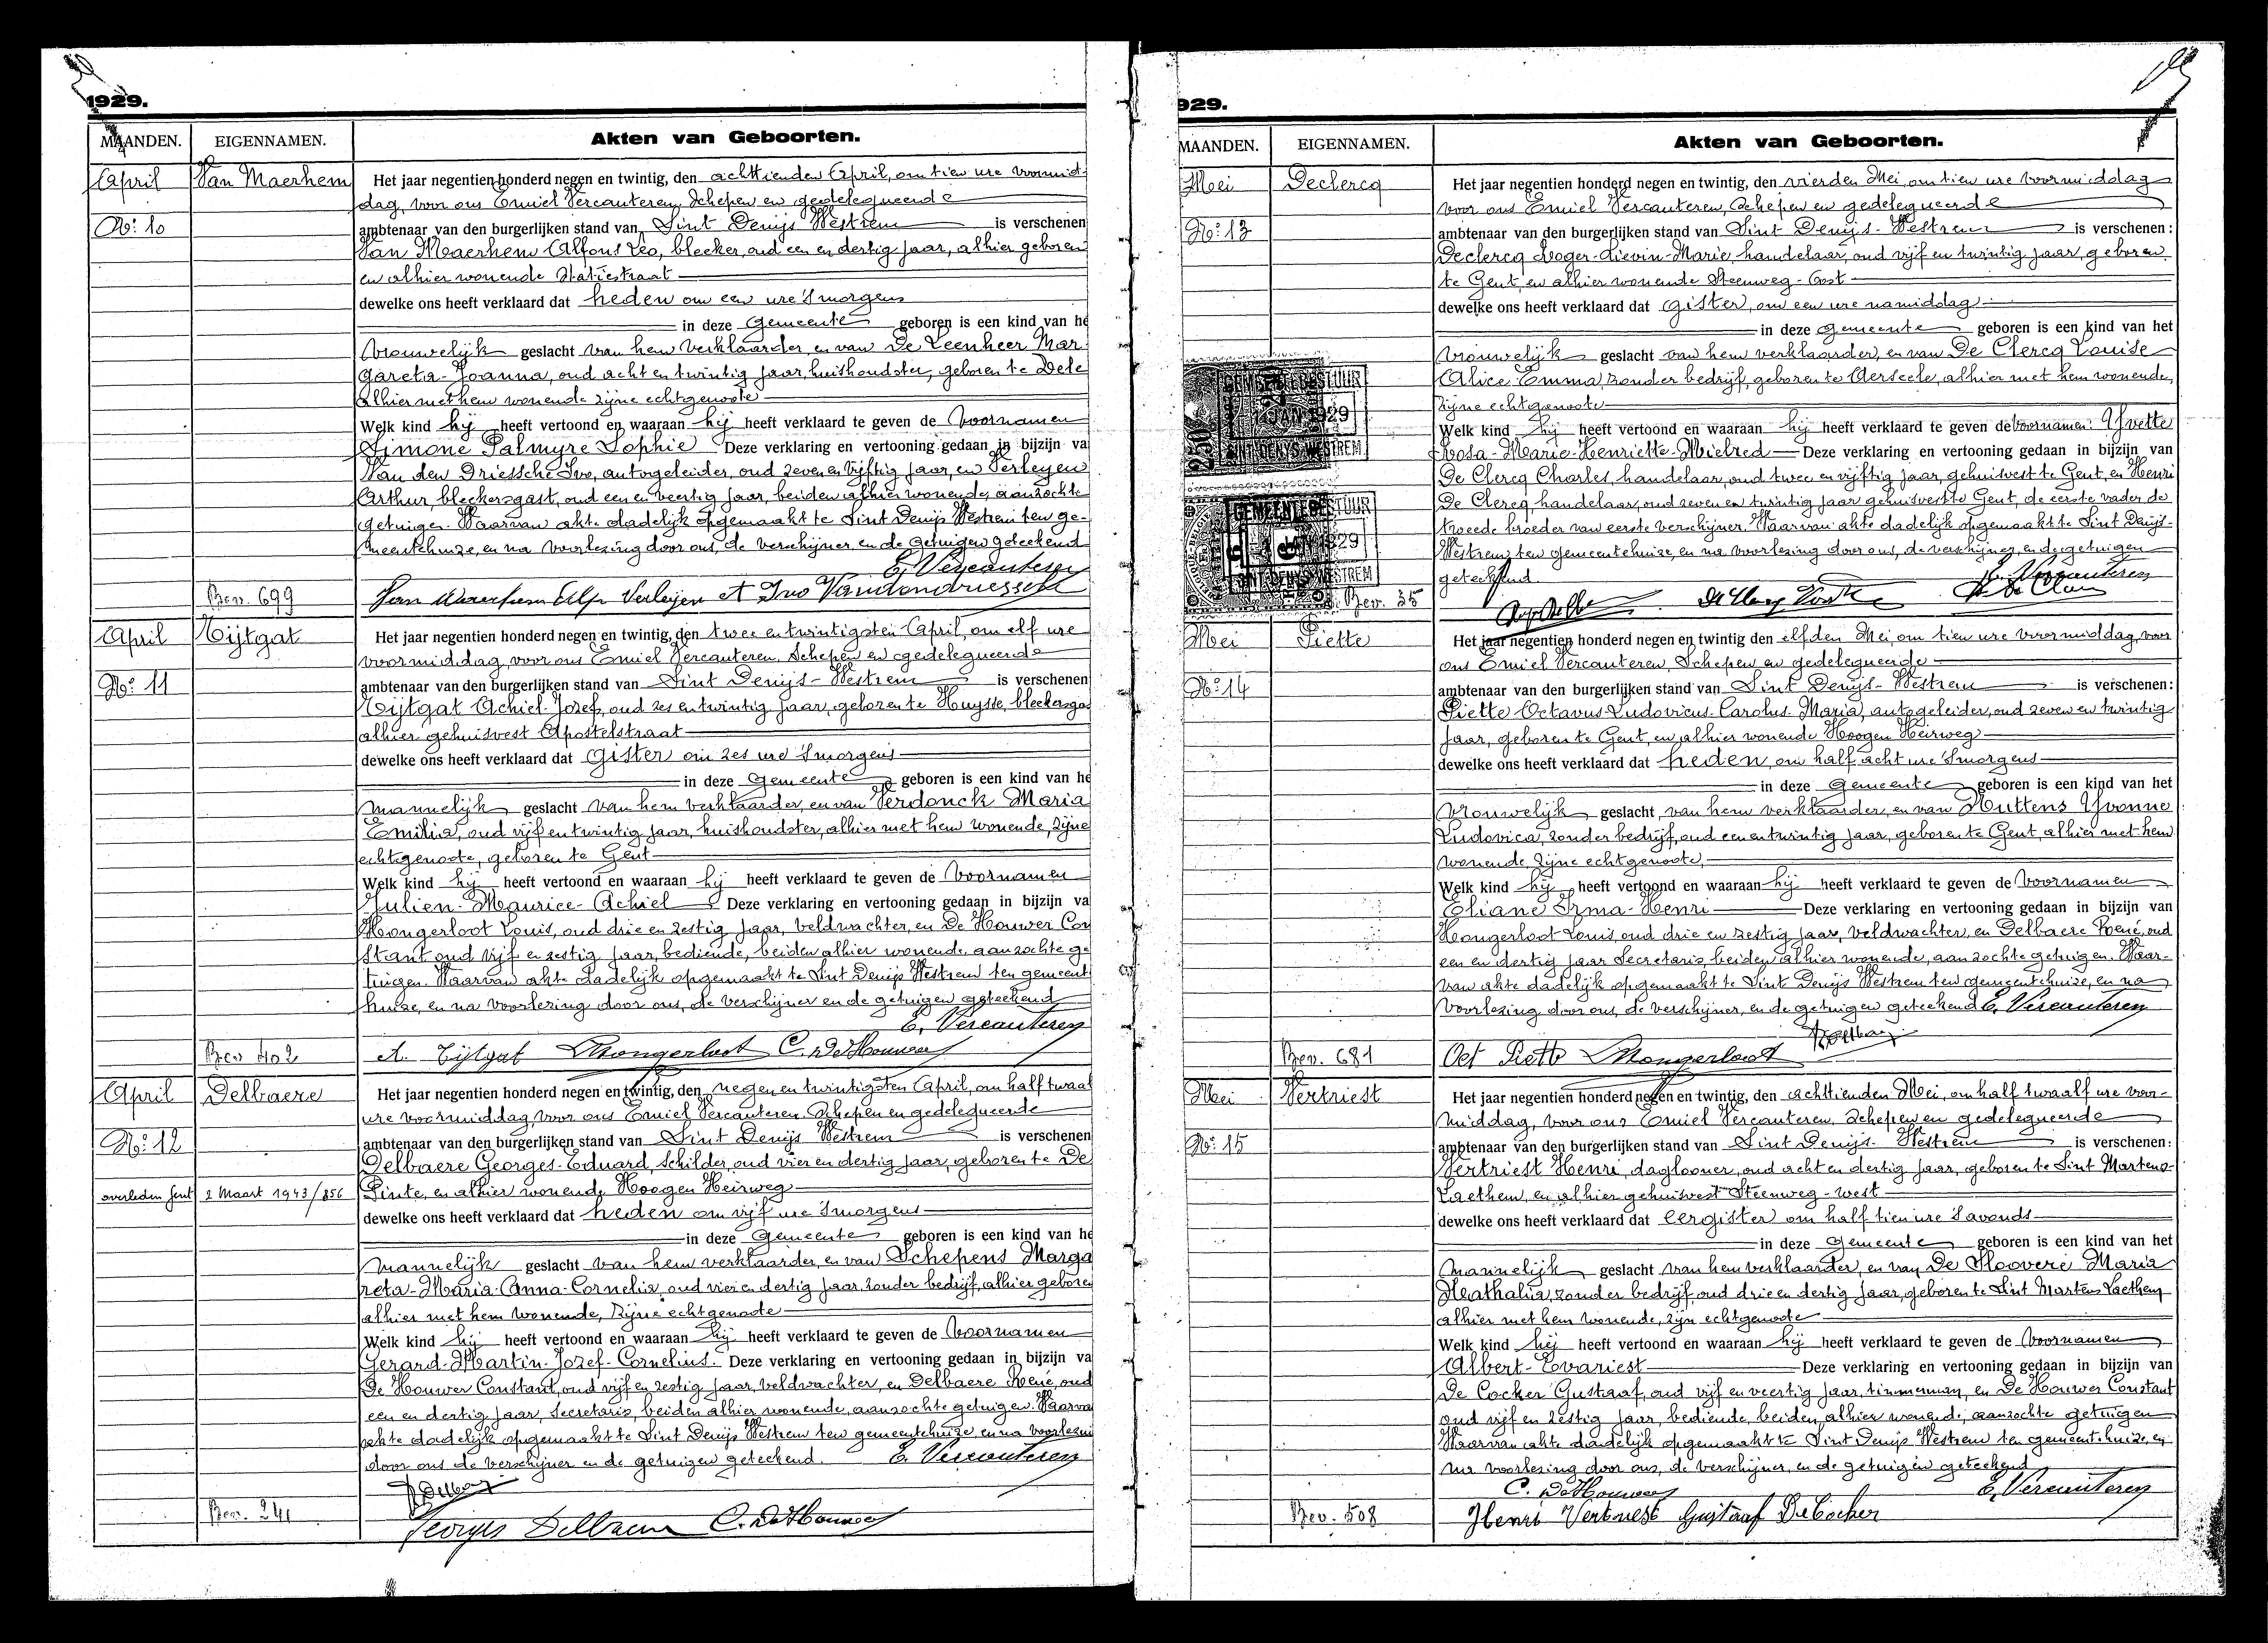 1929.
MAANDEN. EIGENNAMEN. Akten van Geboorten.
April Van Maerhem Het jaar negentien honderd negen en twintig, den achttienden April, om tien ure voormid-
dag, voor ons Emiel Vercauteren, Schepen en gedelegueerde
No: 10 ambtenaar van den burgerlijken stand van Sint Denijs Westrem is verschenen
Van Maerhem Alfons Leo, bleeker, oud een en dertig jaar, alhier geboren
en alhier wonende Statiestraat
dewelke ons heeft verklaard dat heden om een ure 's morgens
in deze Gemeente geboren is een kind van he
Vrouwelijk geslacht van hem verklaarder, en van De Leenheer Mar
gareta-Joanna, oud acht en twintig jaar, huishoudster, geboren te Dele
alhier met hem wonende zijne echtgenoote
Welk kind hij heeft vertoond en waaraan hij heeft verklaard te geven de Voornamen
Simone Palmyre Sophie Deze verklaring en vertooning gedaan in bijzijn va
Van den Driessche Ivo, autogeleider, oud zeven en vijftig jaar, en Verleyen
Arthur, bleekersgast, oud een en veertig jaar, beiden alhier wonende, aanzochte
getuigen. Waarvan akte dadelijk opgemaakt te Sint Denijs Westrem ten ge-
meentehuize, en na voorlezing door ons, de verschijner en de getuigen geteekend
E. Vercauteren
Bev. 699 Van Maerhem Alf. Verleijen A Ivo Vandendriessche
April Tijtgat Het jaar negentien honderd negen en twintig, den twee en twintigsten April, om elf ure
voormiddag, voor ons Emiel Vercauteren, Schepen en gedelegueerde
No: 11 ambtenaar van den burgerlijken stand van Sint Denijs-Westrem is verschenen
Tijtgat Achiel-Jozef, oud zes en twintig jaar, geboren te Huysse, bleekersgas
alhier gehuisvest Apostelstraat
dewelke ons heeft verklaard dat gister om zes ure 's morgens
in deze Gemeente geboren is een kind van he
Mannelijk geslacht van hem verklaarder, en van Verdonck Maria
Emilia, oud vijf en twintig jaar, huishoudster, alhier met hem wonende, zijne
echtgenoote, geboren te Gent
Welk kind hij heeft vertoond en waaraan hij heeft verklaard te geven de Voornamen
Julien-Maurice-Achiel Deze verklaring en vertooning gedaan in bijzijn va
Hongerloot Louis, oud drie en zestig jaar, veldwachter, en De Houwer Con
stant oud vijf en zestig jaar, bediende, beiden alhier wonende, aanzochte ge
tuigen. Waarvan akte dadelijk opgemaakt te Sint Denijs Westrem ten gemeent
huize, en na voorlezing door ons, de verschijner en de getuigen geteekend
E. Vercauteren
Bev 402 A. Tijtgat L Hongerloot C. De Houwer
April Delbaere Het jaar negentien honderd negen en twintig, den negen en twintigsten April, om half twaal
ure voormiddag, voor ons Emiel Vercauteren, Schepen en gedelegueerde
No: 12 ambtenaar van den burgerlijken stand van Sint Denijs Westrem is verschenen
Delbaere Georges-Eduard, Schilder, oud vier en dertig jaar, geboren te De
overleden Gent 2 Maart 1943/856 Pinte, en alhier wonende Hoogen Heirweg
dewelke ons heeft verklaard dat heden om vijf ure 's morgens
in deze Gemeente geboren is een kind van he
Mannelijk geslacht van hem verklaarder, en van Schepens Marga
reta-Maria-Anna-Cornelia, oud vier en dertig jaar, zonder bedrijf, alhier geboren
alhier met hem wonende, zijne echtgenoote
Welk kind hij heeft vertoond en waaraan hij heeft verklaard te geven de Voornamen
Gerard-Martin-Jozef-Cornelius. Deze verklaring en vertooning gedaan in bijzijn va
De Houwer Constant, oud vijf en zestig jaar, veldwachter, en Delbaere René, oud
een en dertig jaar, Secretaris, beiden alhier wonende, aanzochte getuigen. Waarva
akte dadelijk opgemaakt te Sint Denijs Westrem ten gemeentehuize en na voorlezin
door ons de verschijner en de getuigen geteekend. E. Vercauteren
R Delbaere
Bev. 241 Georges Delbaere C. De Houwer
929.
MAANDEN. EIGENNAMEN. Akten van Geboorten.
Mei Declercq Het jaar negentien honderd negen en twintig, den vierden Mei, om tien ure voormiddag
voor ons Emiel Vercauteren, Schepen en gedelegueerde
No: 13 ambtenaar van den burgerlijken stand van Sint Denijs-Westrem is verschenen:
Declercq Roger-Lievin-Marie, handelaar, oud vijf en twintig jaar, geboren
te Gent, en alhier wonende Steenweg-Oost
dewelke ons heeft verklaard dat gister, om een ure namiddag
in deze gemeente geboren is een kind van het
Vrouwelijk geslacht van hem verklaarder, en van De Clercq Louise
Alice-Emma, zonder bedrijf, geboren te Aerseele, alhier met hem wonende,
zijne echtgenoote
Welk kind hij heeft vertoond en waaraan hij heeft verklaard te geven de Voornamen: Yvette
Rosa-Marie-Henriette-Mielred Deze verklaring en vertooning gedaan in bijzijn van
De Clercq Charles, handelaar, oud twee en vijftig jaar, gehuisvest te Gent, en Henri
De Clercq, handelaar, oud zeven en twintig jaar gehuisvest te Gent, de eerste vader de
tweede broeder van eerste verschijner. Waarvan akte dadelijk opgemaakt te Sint Denijs-
Westrem ten gemeentehuize, en na voorlezing door ons, de verschijner, en de getuigen
geteekend. E. Vercauteren
Bev. 35
Mei Piette Het jaar negentien honderd negen en twintig den elfden Mei, om tien ure voormiddag, voor
ons Emiel Vercauteren, Schepen en gedelegueerde
No: 14 ambtenaar van den burgerlijken stand van Sint Denijs-Westrem is verschenen:
Piette Octavus-Ludovicus-Carolus-Maria, autogeleider, oud zeven en twintig
jaar, geboren te Gent, en alhier wonende Hoogen Heirweg
dewelke ons heeft verklaard dat heden, om half acht ure 's morgens
in deze Gemeente geboren is een kind van het
Vrouwelijk geslacht, van hem verklaarder, en van Huttens Yvonne
Ludovica, zonder bedrijf, oud een en twintig jaar, geboren te Gent, alhier met hem
wonende, zijne echtgenoote,
Welk kind hij heeft vertoond en waaraan hij heeft verklaard te geven de Voornamen
Eliane Irma-Henri Deze verklaring en vertooning gedaan in bijzijn van
Hongerloot Louis, oud drie en zestig jaar, veldwachter, en Delbaere René, oud
een en dertig jaar Secretaris, beiden alhier wonende, aanzochte getuigen. Waar-
van akte dadelijk opgemaakt te Sint Denijs Westrem ten gemeentehuize, en na
voorlezing door ons, de verschijner, en de getuigen geteekend E. Vercauteren
R Delbaere
Bev. 681 Oct Piette L Hongerloot
Mei Vertriest Het jaar negentien honderd negen en twintig, den achttienden Mei, om half twaalf ure voor-
middag, voor ons Emiel Vercauteren, Schepen en gedelegueerde
No: 15 ambtenaar van den burgerlijken stand van Sint Denijs Westrem is verschenen:
Vertriest Henri, daglooner, oud acht en dertig jaar, geboren te Sint Martens-
Laethem, en alhier gehuisvest Steenweg-west
dewelke ons heeft verklaard dat eergister om half tien ure 's avonds
in deze Gemeente geboren is een kind van het
Mannelijk geslacht van hem verklaarder, en van De Hoovere Maria
Neathalia, zonder bedrijf, oud drie en dertig jaar, geboren te Sint Martens Laethem
alhier met hem wonende, zijn echtgenoote
Welk kind hij heeft vertoond en waaraan hij heeft verklaard te geven de Voornamen
Albert-Evariest Deze verklaring en vertooning gedaan in bijzijn van
De Cocker Gustaaf, oud vijf en veertig jaar, timmerman, en De Houwer Constant
oud vijf en zestig jaar, bediende, beiden alhier wonende, aanzochte getuigen
Waarvan akte dadelijk opgemaakt te Sint Denijs Westrem ten gemeentehuize, en
na voorlezing door ons, de verschijner, en de getuigen geteekend
C. De Houwer E. Vercauteren
Bev. 508 Henri Vertriest Gustaaf De Cocker